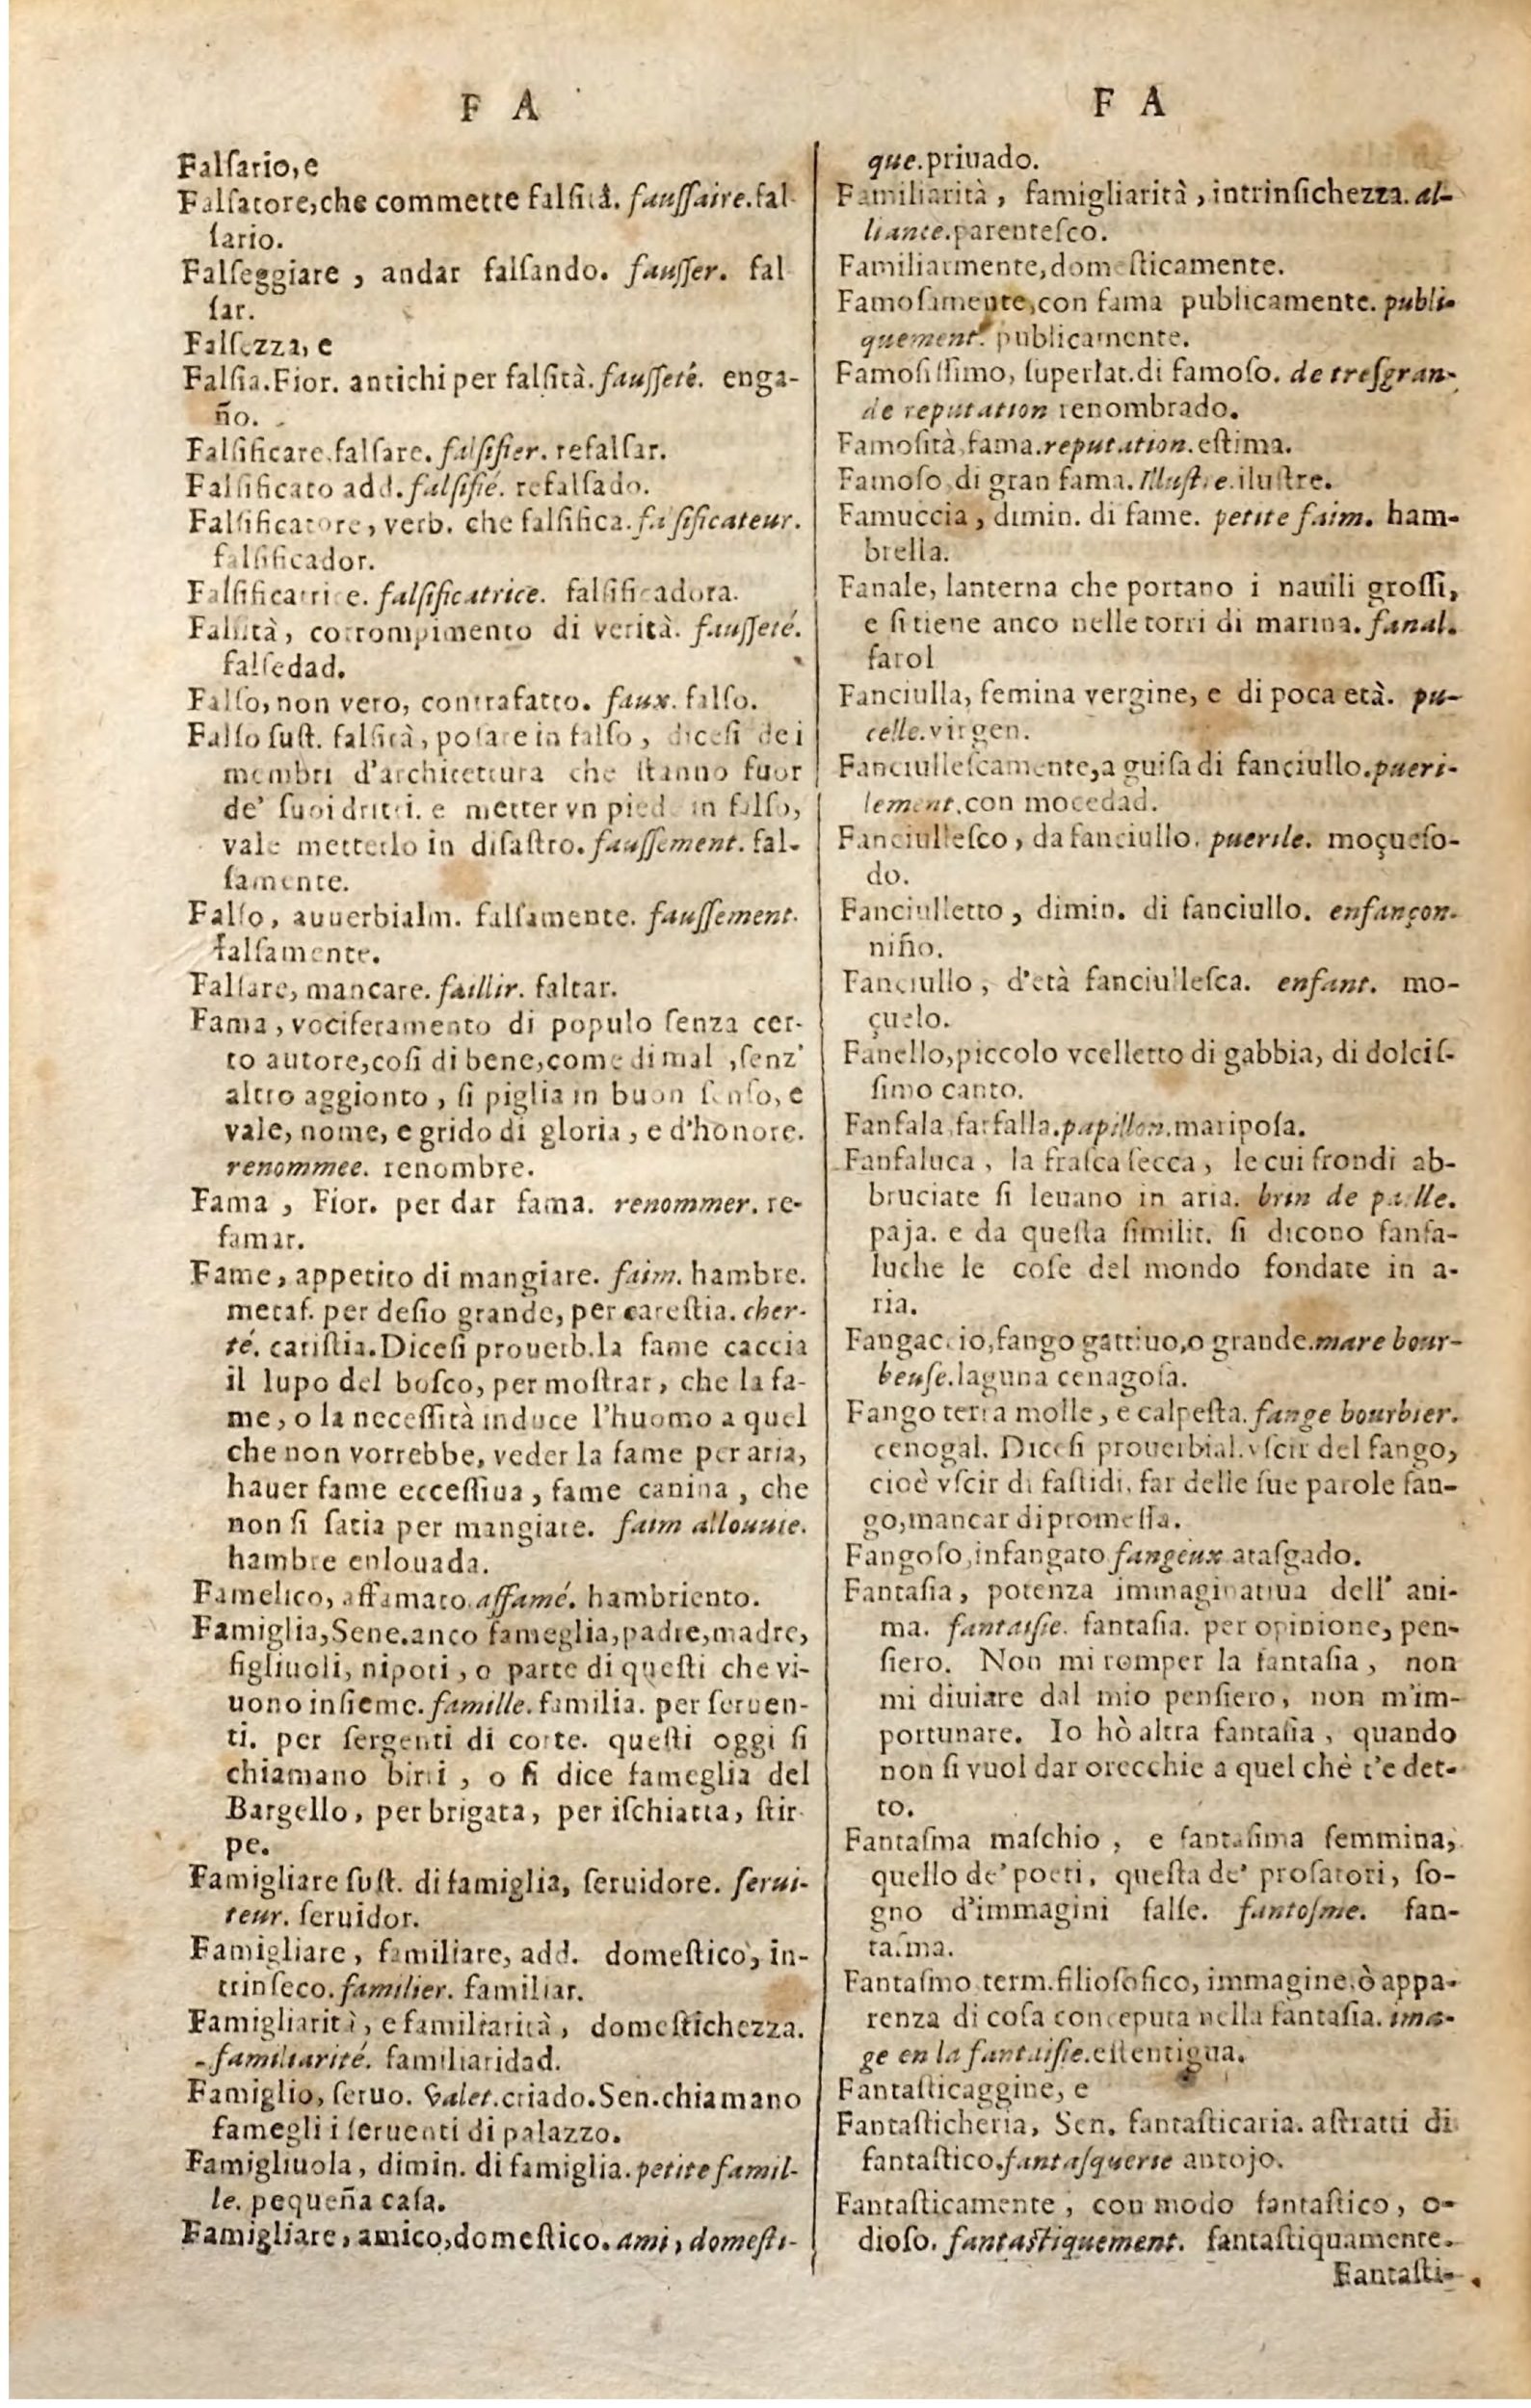 F A
Falſario, e
Falſatore, che commette falſità. fauſſaire. fal-
ſario.
Falſeggiare , andar falſando. fauſſer. fal
ſar.
Falſezza, e
Falſia. Fior. antichi per falſità. fauſſeté. enga-
ño.
Falſificare. falſare. falſifier. refalſar.
Falſificato add. falſifié. refalſado.
Falſificatore, verb. che falſifica. falſificateur.
falſificador.
Falſificatrice. falſificatrice. falſificadora.
Falſità, corrompimento di verità. fauſſeté.
falſedad.
Falſo, non vero, contrafatto. faux. falſo.
Falſo ſuſt. falſità, poſare in falſo , diceſi dei
membri d'architettura che ſtanno fuor
de' ſuoi dritti. e metter vn piede in falſo,
vale metterlo in diſaſtro. fauſſement. fal-
ſamente.
Falſo, auuerbialm. falſamente. fauſſement.
falſamente.
Falſare, mancare. faillir. faltar.
Fama , vociferamento di populo ſenza cer-
to autore, coſi di bene, come di mal , ſenz'
altro aggionto , ſi piglia in buon ſenſo, e
vale, nome, e grido di gloria , e d'honore.
renommee. renombre.
Fama , Fior. per dar fama. renommer. re-
famar.
Fame , appetito di mangiare. faim. hambre.
metaf. per deſio grande, per careſtia. cher-
té. cariſtia. Diceſi prouerb. la fame caccia
il lupo del boſco, per moſtrar , che la fa-
me, o la neceſſità induce l'huomo a quel
che non vorrebbe, veder la fame per aria,
hauer fame ecceſſiua , fame canina , che
non ſi ſatia per mangiare. faim allouuie.
hambre enlouada.
Famelico, affamato. affamé. hambriento.
Famiglia, Sene. anco fameglia, padre, madre,
figliuoli, nipoti , o parte di queſti che vi-
uono inſieme. famille. familia. per ſeruen-
ti. per ſergenti di corte. queſti oggi ſi
chiamano birri , o ſi dice fameglia del
Bargello, per brigata, per iſchiatta, ſtir-
pe.
Famigliare ſuſt. di famiglia, ſeruidore. ſerui-
teur. ſeruidor.
Famigliare , familiare, add. domeſtico, in-
trinſeco. familier. familiar.
Famigliarità, e familiarità , domeſtichezza.
familiarité. familiaridad.
Famiglio, ſeruo. Valet. criado. Sen. chiamano
famegli i ſeruenti di palazzo.
Famigliuola , dimin. di famiglia. petite famil-
le. pequeña caſa.
Famigliare, amico, domeſtico. ami, domeſti-
F A
que. priuado.
Familiarità , famigliarità , intrinſichezza. al-
liance. parenteſco.
Familiarmente, domeſticamente.
Famoſamente, con fama publicamente. publi-
quement. publicamente.
Famoſiſſimo, ſuperlat. di famoſo. de treſgran-
de reputation renombrado.
Famoſità, fama. reputation. eſtima.
Famoſo, di gran fama. Illuſtre. iluſtre.
Famuccia , dimin. di fame. petite faim. ham-
brella.
Fanale, lanterna che portano i nauili groſſi,
e ſi tiene anco nelle torri di marina. fanal.
farol
Fanciulla, femina vergine, e di poca età. pu-
celle. virgen.
Fanciulleſcamente, a guiſa di fanciullo. pueri-
lement. con mocedad.
Fanciulleſco , da fanciullo. puerile. moçueſo-
do.
Fanciulletto , dimin. di fanciullo. enfançon.
niño.
Fanciullo , d'età fanciulleſca. enfant. mo-
çuelo.
Fanello, piccolo vcelletto di gabbia, di dolciſ-
ſimo canto.
Fanfala, farfalla. papillon. maripoſa.
Fanfaluca , la fraſca ſecca , le cui frondi ab-
bruciate ſi leuano in aria. brin de paille.
paja. e da queſta ſimilit. ſi dicono fanfa-
luche le coſe del mondo fondate in a-
ria.
Fangaccio, fango gattiuo, o grande. mare bour-
beuſe. laguna cenagoſa.
Fango terra molle , e calpeſta. fange bourbier.
cenogal. Diceſi prouerbial. vſcir del fango,
cioè vſcir di faſtidi. far delle ſue parole fan-
go, mancar di promeſſa.
Fangoſo, infangato fangeux ataſgado.
Fantaſia , potenza immaginatiua dell' ani-
ma. fantaiſie. fantaſia. per opinione, pen-
ſiero. Non mi romper la fantaſia , non
mi diuiare dal mio penſiero, non m'im-
portunare. Io hò altra fantaſia , quando
non ſi vuol dar orecchie a quel chè t'e det-
to.
Fantaſma maſchio , e fantaſima femmina,
quello de' poeti, queſta de' proſatori, ſo-
gno d'immagini falſe. fantoſme. fan-
taſma.
Fantaſmo term. filioſofico, immagine, ò appa-
renza di coſa conceputa nella fantaſia. ima-
ge en la fantaiſie. eſtentigua.
Fantaſticaggine, e
Fantaſticheria, Sen. fantaſticaria. aſtratti di
fantaſtico. fantaſquerie antojo.
Fantaſticamente , con modo fantaſtico, o-
dioſo. fantaſtiquement. fantaſtiquamente.
Fantaſti-